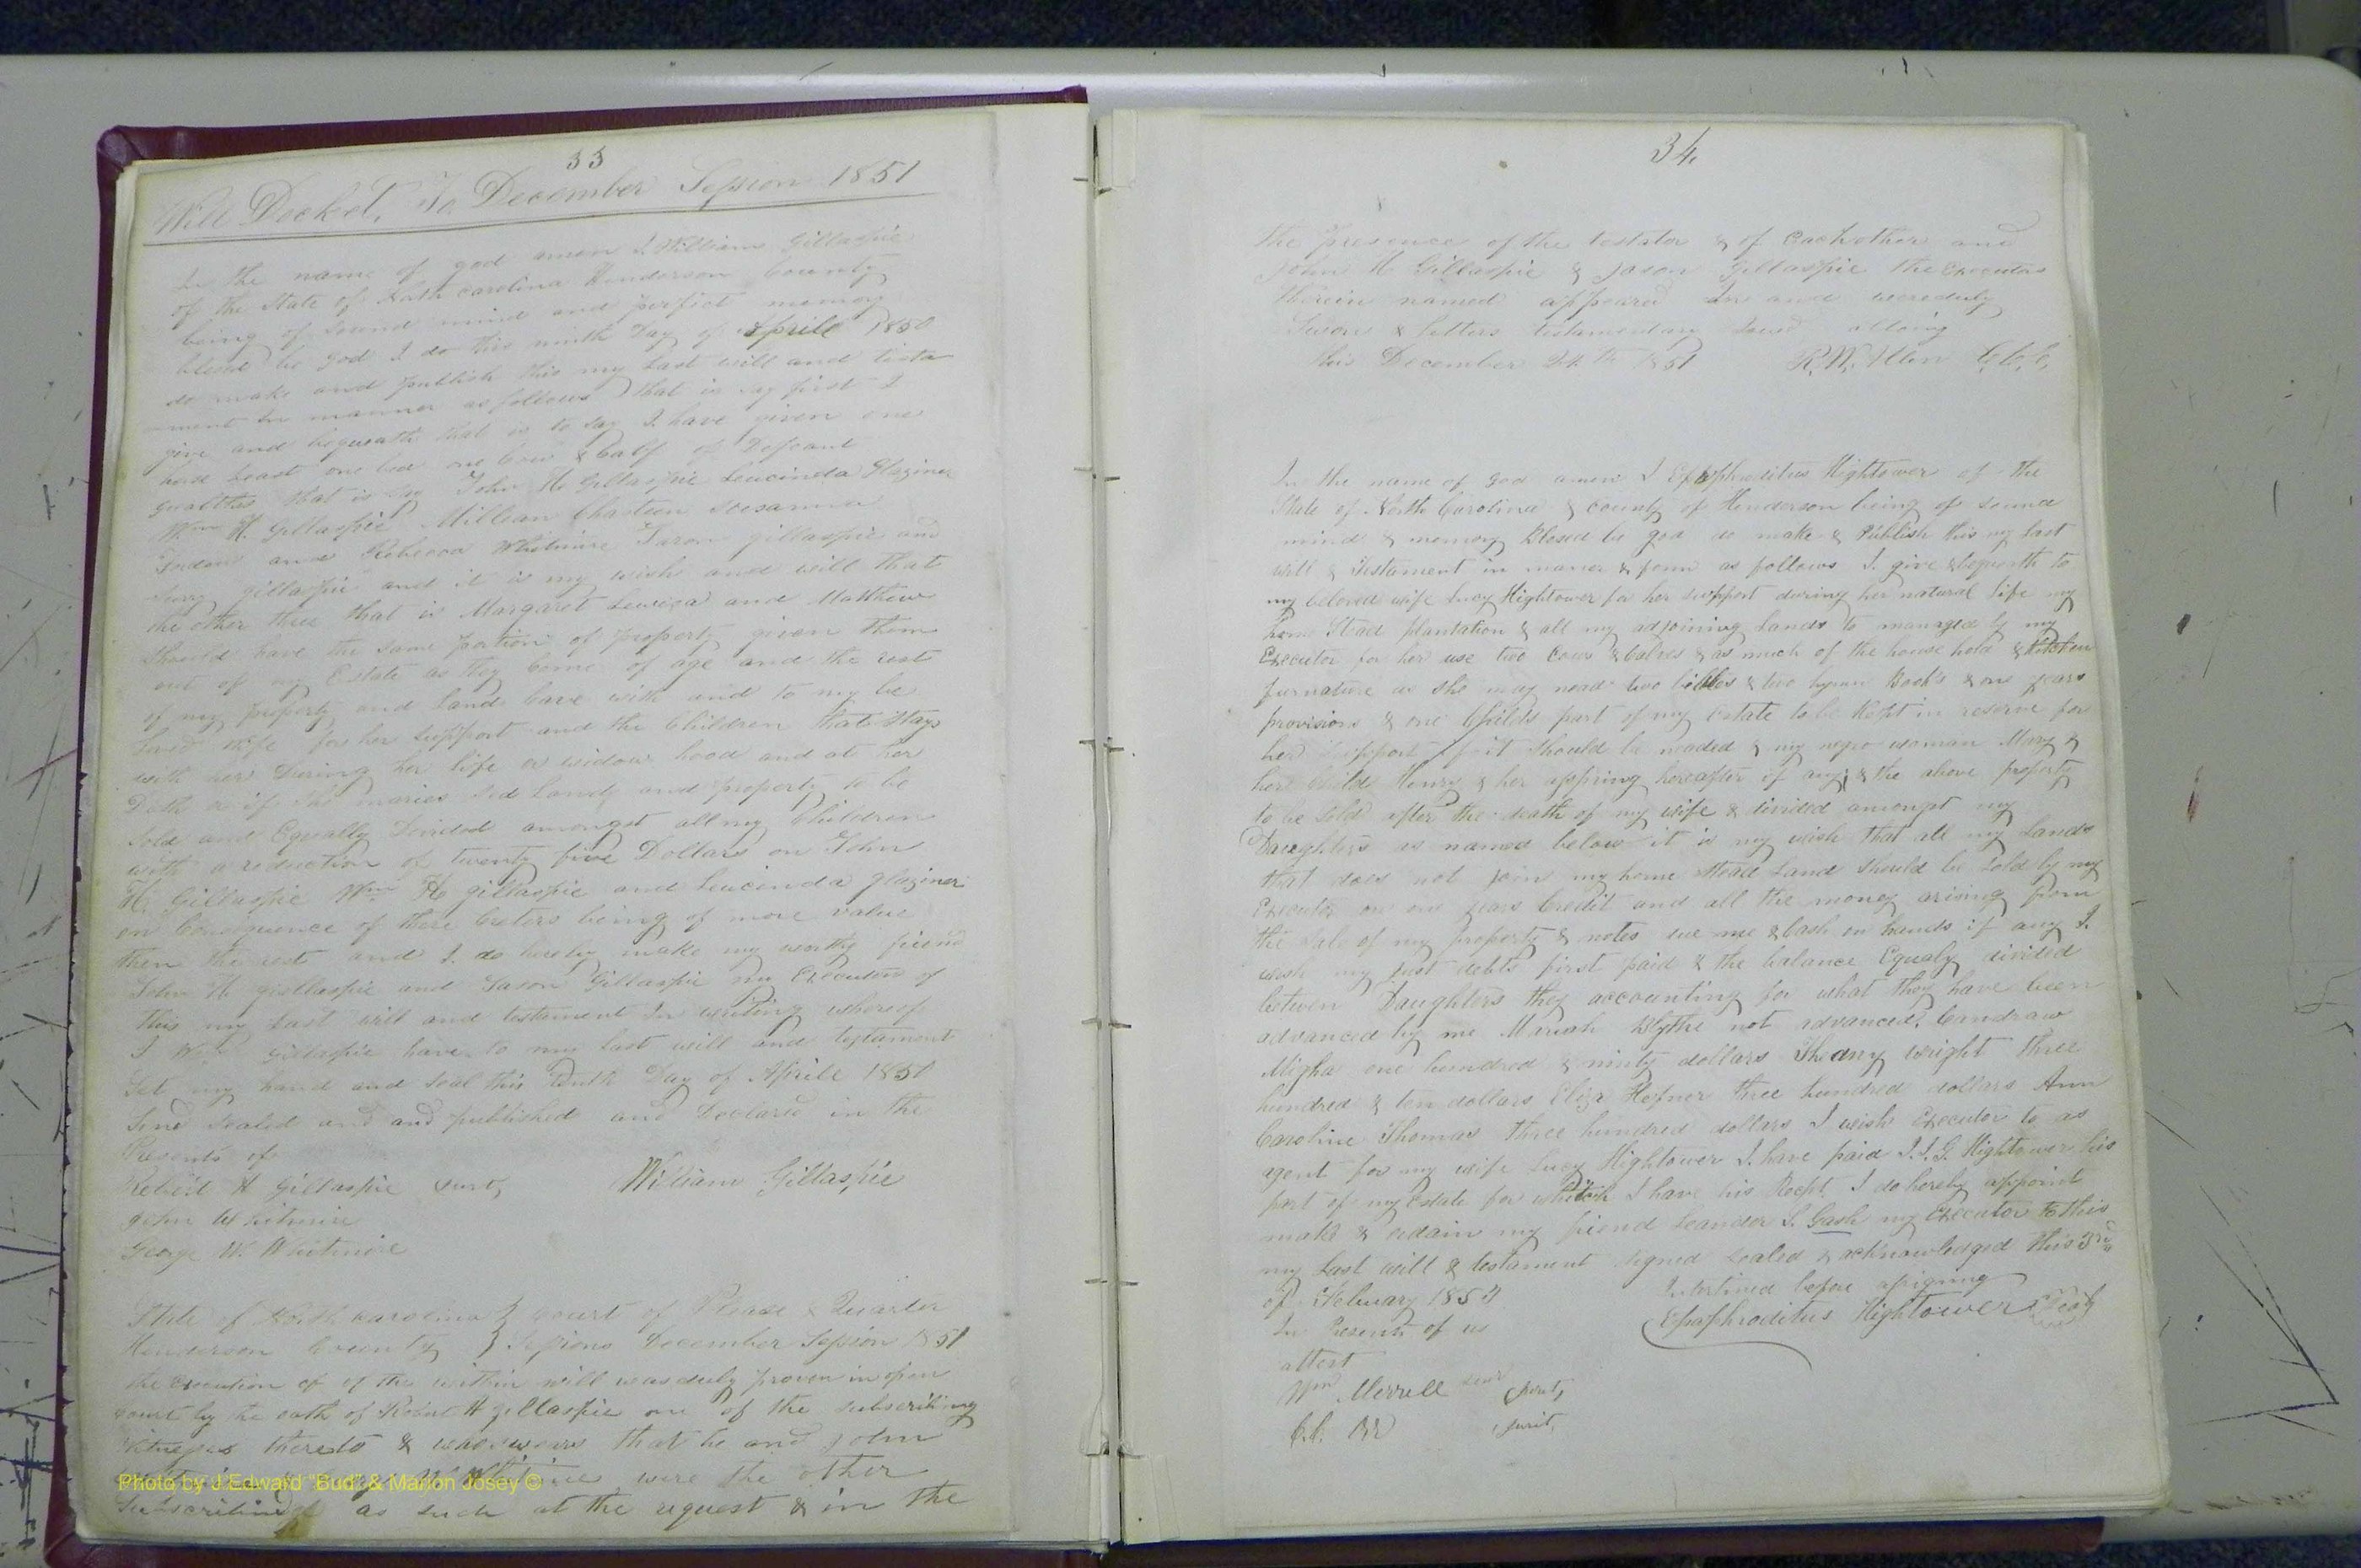 33
Will Docket, To December Session 1851
In the name of god amen I William Gillaspie
of the State of North Carolina Henderson County
being of sound mind and perfict memory
blessed be god I do this ninth Day of Aprile 1850
do make and publish this my last will and testa
ment in manner as follows that is say first I
give and bequeath that is to say I have given one
horse beast one bed one Cow & Calf
that is say John H. Gillaspie Leucinda Glaziner
Wm H. Gillaspie Millean Chasteen Soesanna
and Rebecca Whitmire Jason gillaspie and
gillaspie and it is my wish and will that
the other three that is Margaret Lewisa and Matthew
should have the same portion of property given them
out of my Estate as they Come of age and the rest
of my property and lands leave with and to my be
loved wife for her support and the Children that stays
with her During her life or widow hood and at her
Death or if she maries sed lands and property to be
Sold and Equally Devided amongst all my Children
with a reduction of twenty five Dollars on John
H. Gillaspie Wm H gillaspie and Leucinda glaziner
on Consequence of there Creters being of more value
then the rest and I do hereby make my worthy friend
John H gisllaspie and Jason Gillaspie my Executors of
this my last will and testament In writing whereof
I Wm gillaspie have to my last will and testament
Set my hand and seal this Day of Aprile 1850
Sind sealed and and published and Declared in the
Presents of
Robert H Gillaspie Jurt, William Gillaspie
John Whitmire
George W. Whitmire
State of North Carolina } Court of Pleas & Quarter
Henderson County } Sessions December Session 1851
the Execution of of the within will was duly proven in open
court by the oath of Robert H gillaspie one of the subscribing
witnesses thereto & who swears that he and John
were the other
as such at the request & in the
Photo by J.Edward "Bud" & Marion Josey ©
34
the presence of the testator & of Each other and
John H Gillaspie & Jason Gillaspie the Executors
therein named appeared In and were duly
Sworn & letters testamentary
this December 24th 1851 R. W. Allen C.C.C.
In the name of god amen I Epaphroditus Hightower of the
State of North Carolina & county of Henderson being of sound
mind & memory blessed be god do make & Publish this my last
will & Testament in maner & form as follows I give & bequeth to
my beloved wife Lucy Hightower for her support during her natural life my
home Stead plantation & all my adjoining lands to managed by my
Executor for her use two Cows & Calves & as much of the house hold & kitchen
furnature as she may nead two bibles & two hymn Book's & one years
provisions & one Childs part of my estate to be Kept in reserve for
her support if it should be neaded & my negro woman Mary &
her Child Henry & her offspring hereafter if any; & the above property
to be sold after the death of my wife & divided amongst my
Daughters as named below it is my wish that all my Lands
that does not join my home stead Land should be sold by my
Executor on one years Credit and all the money arising from
the sale of my property & notes due me & Cash on hands if any I
wish my just debts first paid & the balance Equaly divided
betwen Daughters they accounting for what they have been
advanced by me Mariah Blythe not advanced, Candrew
Migha one hundred & ninty dollars wright three
hundred & ten dollars Eliza Hefner three hundred dollars Ann
Caroline Thomas three hundred dollars I wish Executor to as
agent for my wife Lucy Hightower I have paid J.J.G. Hightower his
part of my Estate for whitch I have his Recpt. I do hereby appoint
make & ordain my friend Leander S. Gash my Executor to this
my last will & testament signed sealed & acknowledged this 3rd
of February 1851 Interlined before asigning
In Presents of us Epaphroditus Hightower Seal
attest
Wm Merrell senr Jurt,
C.C. Jurit,